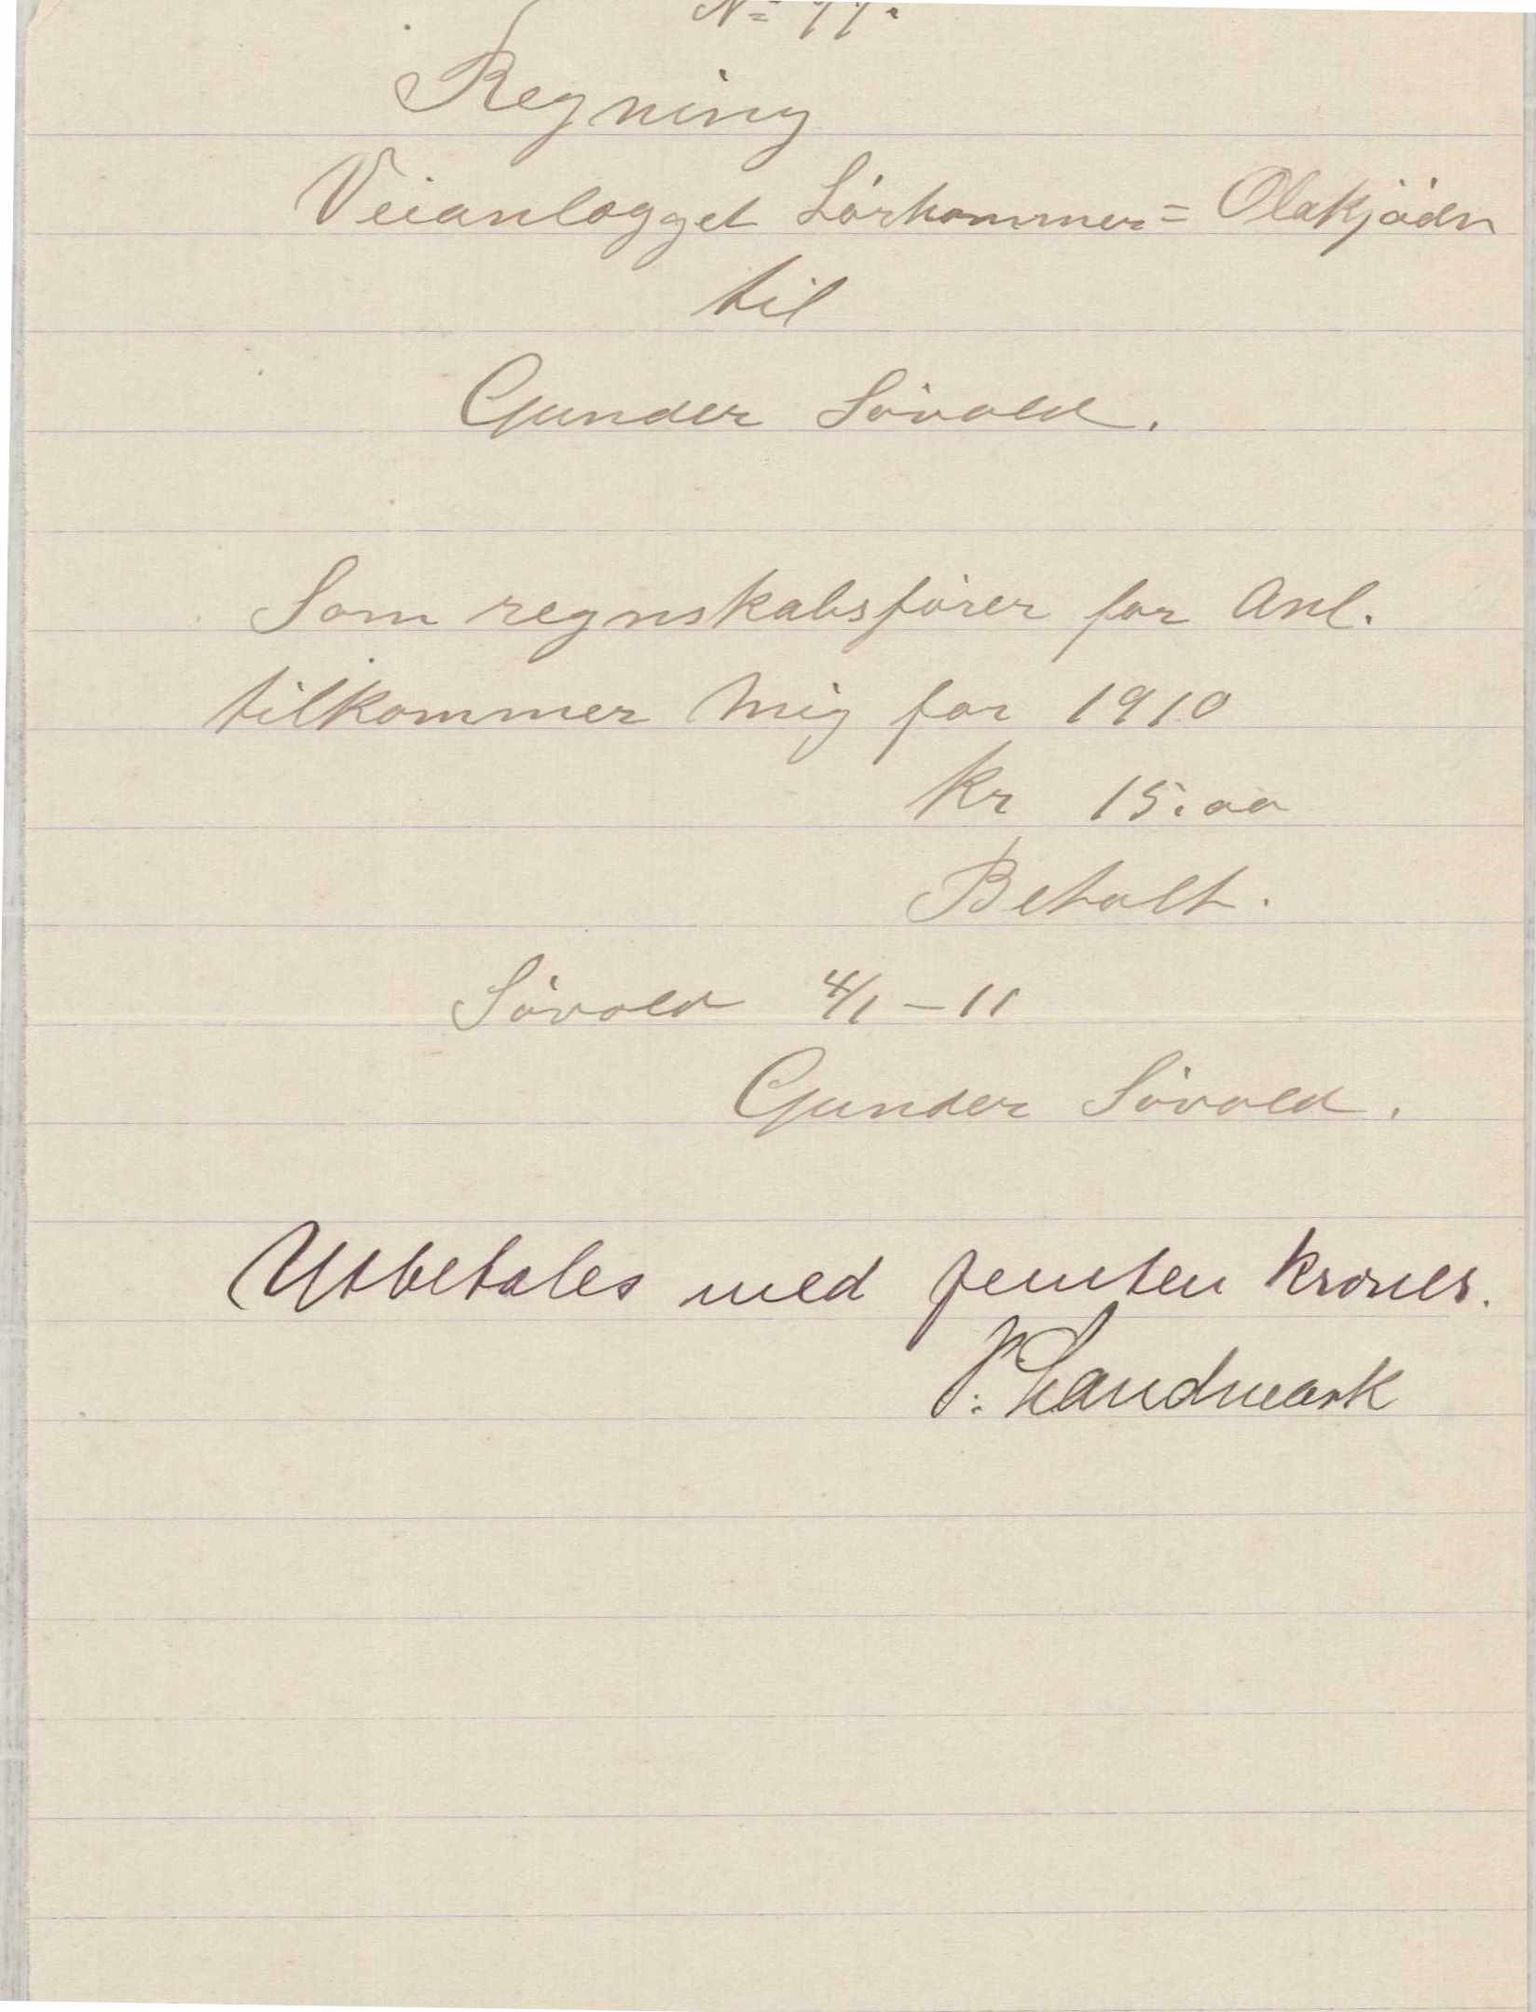 Regning
Veianlægget Lörhammer = Olakjödn
til
Gunder Sövold.
Som regnskabsförer for Anl.
tilkommer Mig for 1910
kr 15.00
Betalt.
Sövold 4/1 - 11
Gunder Sövold.
Utbetales med femten kroner.
P. Landmark